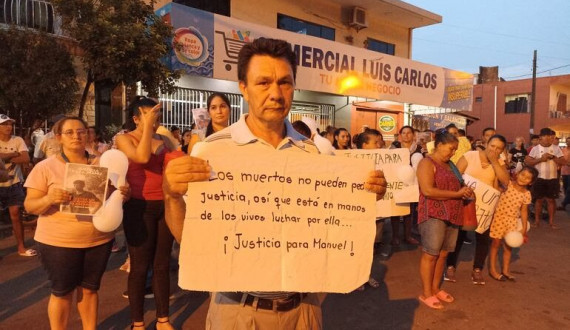 COMERCIAL LUIS CARLOS
TU NEGOCIO
Los muertos no pueden pedir
Justicia, así que está en manos
de los vivos luchar por ella...
¡Justicia para Manuel!
PARA